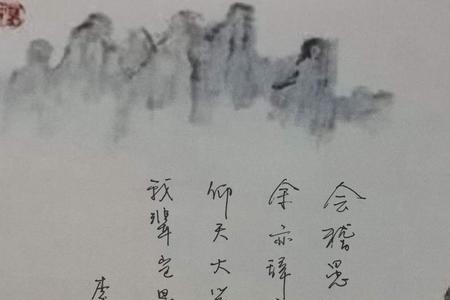 会稽愚
余亦辞
仰天大笑
我辈岂是
李